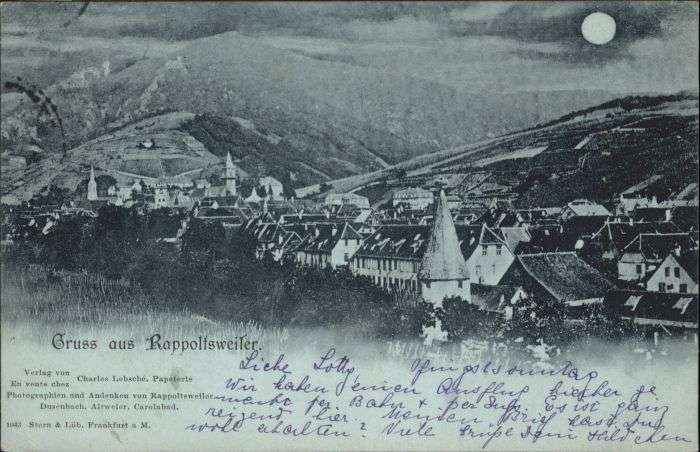 Gruss aus Rappoltsweiler.
Verlag von
En vente chez
Charles Lobsché, Papeterie
Photographien und Andenken von Rappoltsweiler
Dusenbach, Altweier, Carolabad.
1043 Stern & Löb, Frankfurt a M.
Liebe Lotty Pfingstsonntag
Wir haben einen Ausflug hierher ge
macht per Bahn & per Fuß. Es ist ganz
reizend hier. Meinen Brief hast Du
wohl erhalten? Viele Grüße Dein